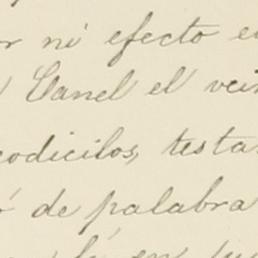 ni efecto
Canel el
codicilos, testa
ó de palabra
en